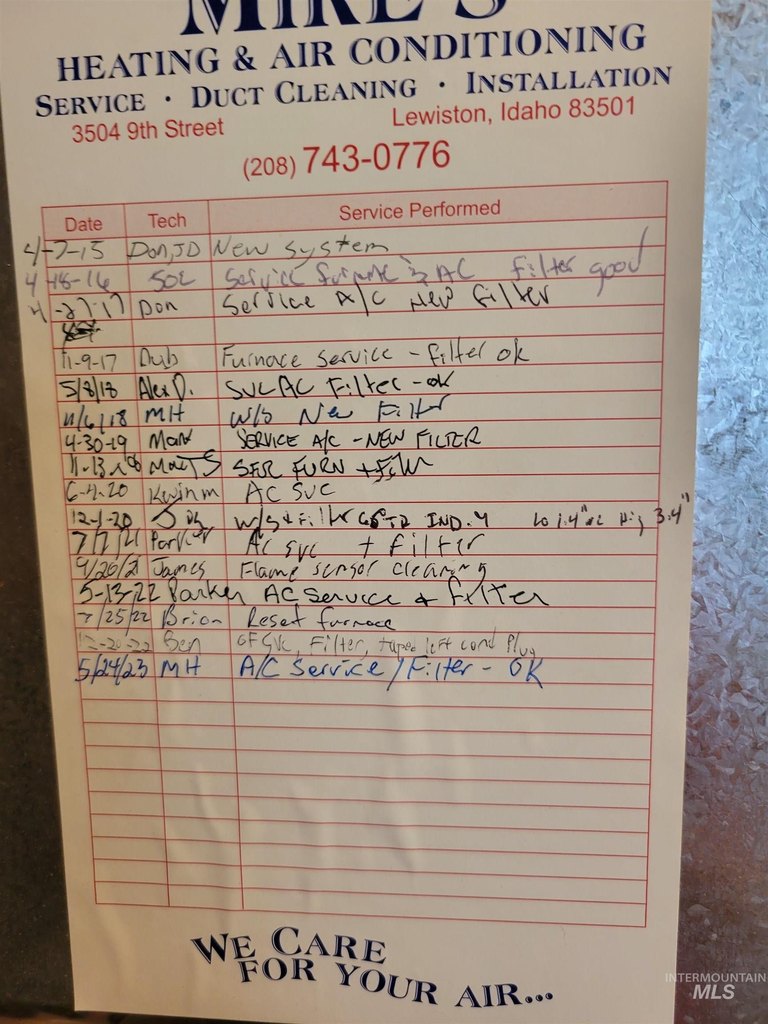 MIKE'S
HEATING & AIR CONDITIONING
SERVICE · DUCT CLEANING · INSTALLATION
3504 9th Street Lewiston, Idaho 83501
(208) 743-0776
Date Tech Service Performed
4-7-15 Don, JD New system
4-18-16 Service furnace & AC filter good
4-27-17 Don Service A/C New Filter
11-9-17 Dub Furnace Service - filter ok
5/8/18 Alex D. SVC AC Filter - ok
11/6/18 MH W/S New Filter
4-30-19 Mark SERVICE A/C - NEW FILTER
SER FURN + Filter
6-4-20 Kwinm AC SVC
12-1-20 W/S + Filter IND. 4 Lo 1.4" 3.4"
7/7/21 Parker AC SVC + filter
9/20/21 James Flame sensor cleaning
5-13-22 Parker AC Service & filter
7/25/22 Brion Reset furnace
12-20-22 Ben GF SVC, Filter, taped left cond Plug
5/24/23 MH A/C Service / Filter - OK
WE CARE
FOR YOUR AIR...
INTERMOUNTAIN
MLS